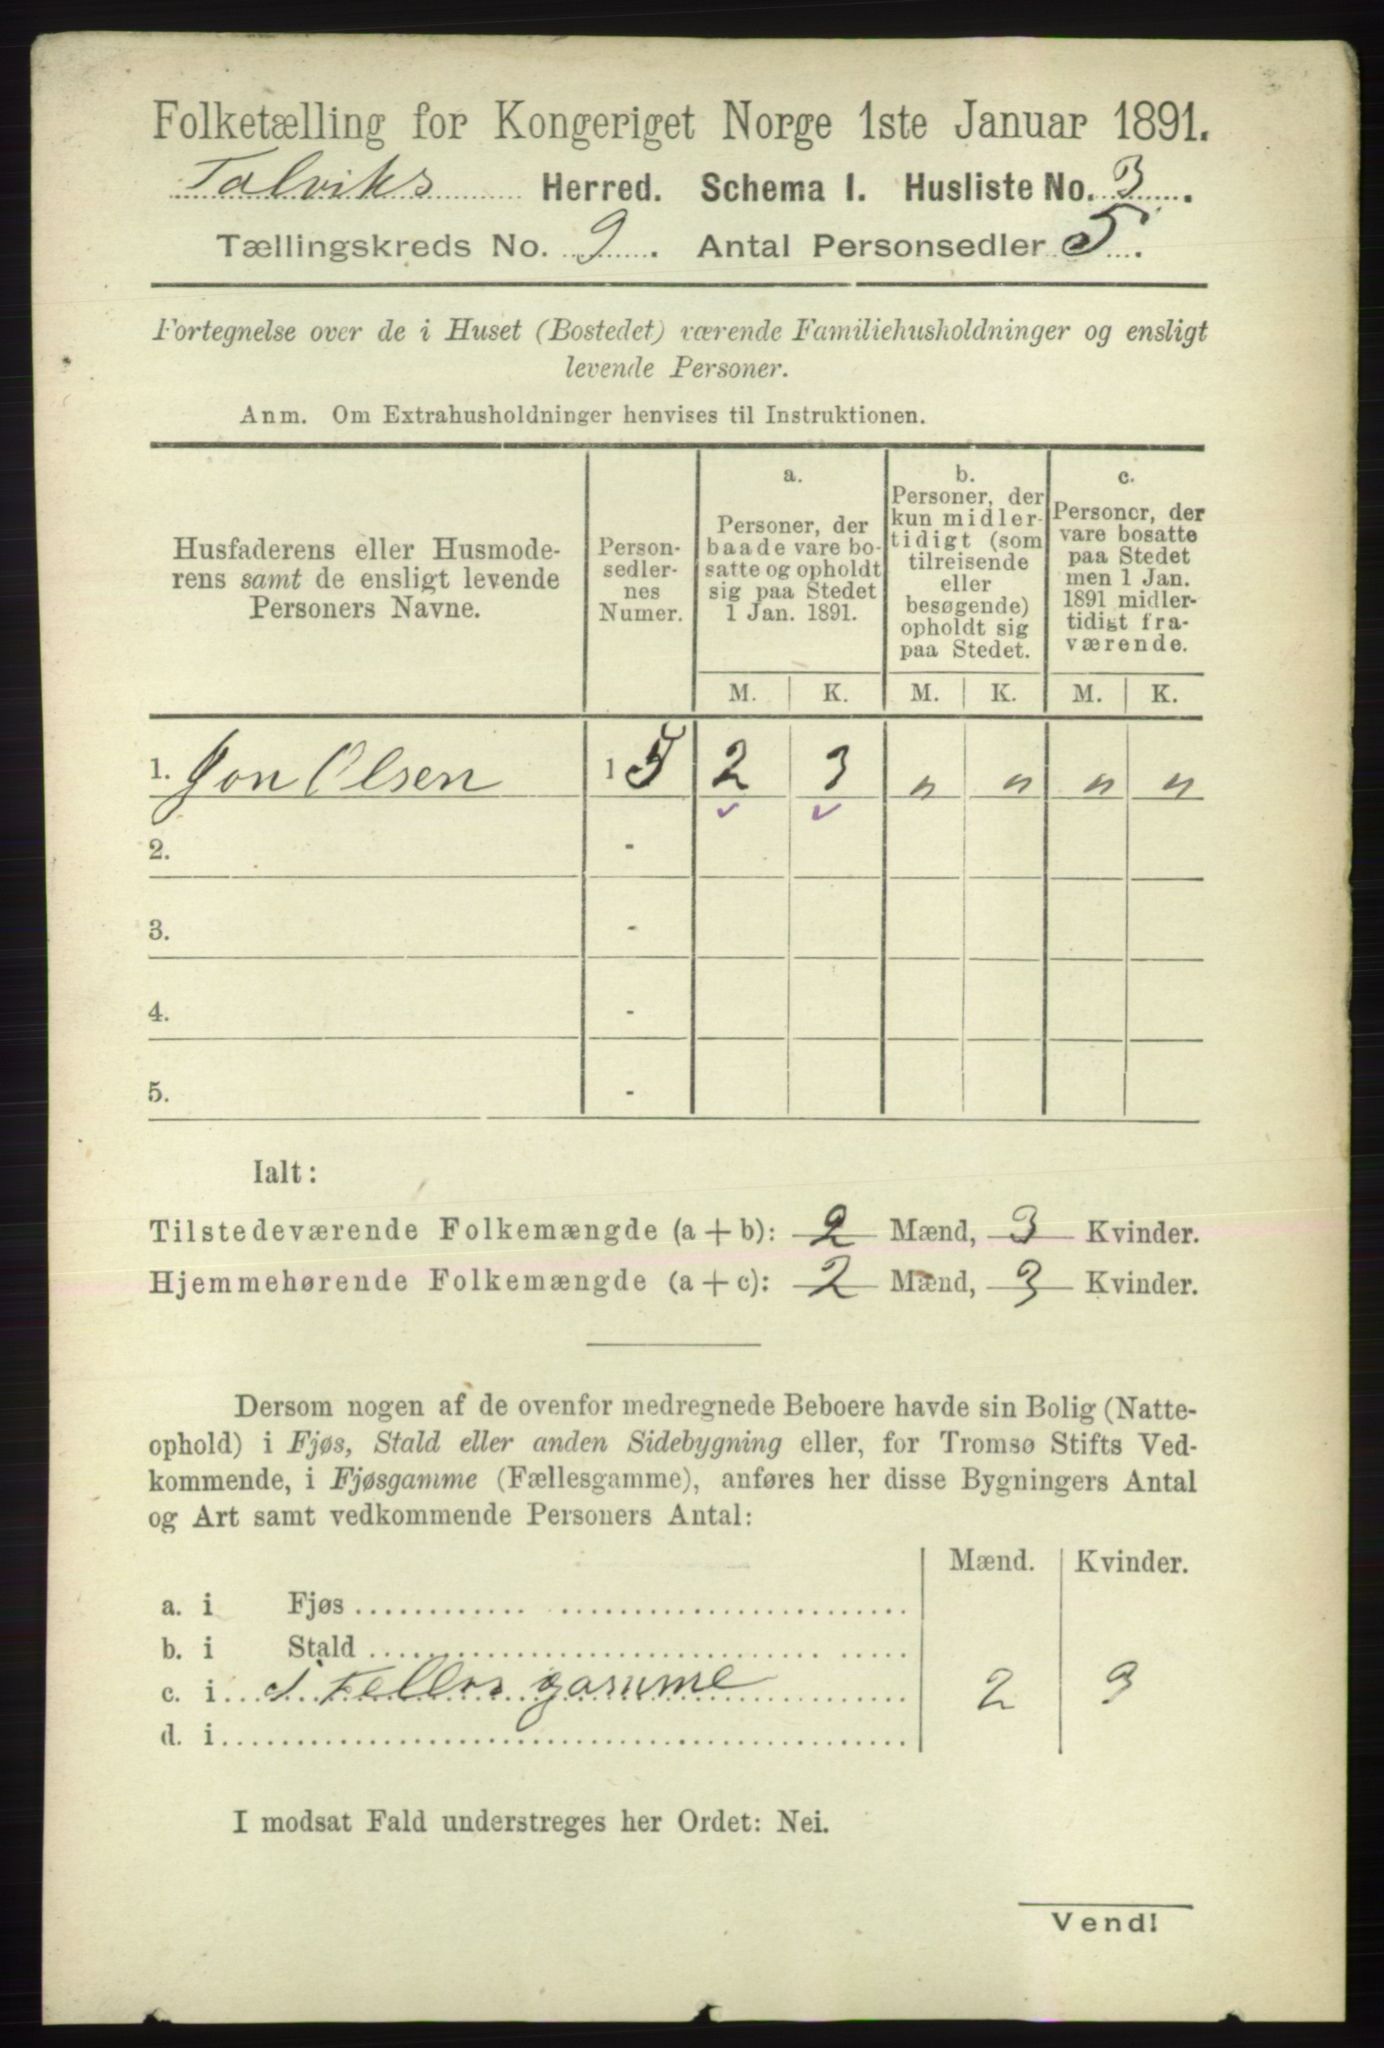 Folketælling for Kongeriget Norge 1ste Januar 1891.
Talviks Herred. Schema I. Husliste No. 3.
Tællingskreds No. 9. Antal Personsedler 5.
Fortegnelse over de i Huset (Bostedet) værende Familiehusholdninger og ensligt
levende Personer.
Anm. Om Extrahusholdninger henvises til Instruktionen.
Husfaderens eller Husmode-
rens samt de ensligt levende
Personers Navne.
Person-
sedler-
nes
Numer.
a.
Personer, der
baade vare bo-
satte og opholdt
sig paa Stedet
1 Jan. 1891.
b.
Personer, der
kun midler-
tidigt (som
tilreisende
eller
besøgende)
opholdt sig
paa Stedet.
c.
Personer, der
vare bosatte
paa Stedet
men 1 Jan.
1891 midler-
tidigt fra-
værende.
M. K. M. K. M. K.
1. Jon Olsen 1 5 2 3 " " " "
2. -
3. -
4. -
5. -
Ialt:
Tilstedeværende Folkemængde (a + b): 2 Mænd, 3 Kvinder.
Hjemmehørende Folkemængde (a + c): 2 Mænd, 3 Kvinder.
Dersom nogen af de ovenfor medregnede Beboere havde sin Bolig (Natte-
ophold) i Fjøs, Stald eller anden Sidebygning eller, for Tromsø Stifts Ved-
kommende, i Fjøsgamme (Fællesgamme), anføres her disse Bygningers Antal
og Art samt vedkommende Personers Antal:
Mænd. Kvinder.
a. i Fjøs
b. i Stald
c. i i Felles gamme 2 3
d. i
I modsat Fald understreges her Ordet: Nei.
Vend!